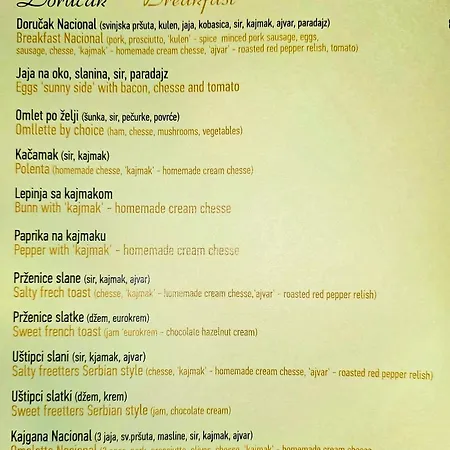 Doručak Breakfast
Doručak Nacional (svinjska pršuta, kulen, jaja, kobasica, sir, kajmak, ajvar, paradajz)
Breakfast Nacional (pork, prosciutto, 'kulen' - spice minced pork sausage, eggs,
sausage, chesse, 'kajmak' - homemade cream chesse, 'ajvar' - roasted red pepper relish, tomato)
Jaja na oko, slanina, sir, paradajz
Eggs 'sunny side' with bacon, chesse and tomato
Omlet po želji (šunka, sir, pečurke, povrće)
Omllette by choice (ham, chesse, mushrooms, vegetables)
Kačamak (sir, kajmak)
Polenta (homemade chesse, 'kajmak' - homemade cream chesse)
Lepinja sa kajmakom
Bunn with 'kajmak' - homemade cream chesse
Paprika na kajmaku
Pepper with 'kajmak' - homemade cream chesse
Prženice slane (sir, kajmak, ajvar)
Salty frech toast (chesse, 'kajmak' - homemade cream chesse,'ajvar' - roasted red pepper relish)
Prženice slatke (džem, eurokrem)
Sweet french toast (jam 'eurokrem - chocolate hazelnut cream)
Uštipci slani (sir, kjamak, ajvar)
Salty freetters Serbian style (chesse, 'kajmak' - homemade cream chesse, 'ajvar' - roasted red pepper relish)
Uštipci slatki (džem, krem)
Sweet freetters Serbian style (jam, chocolate cream)
Kajgana Nacional (3 jaja, sv.pršuta, masline, sir, kajmak, ajvar)